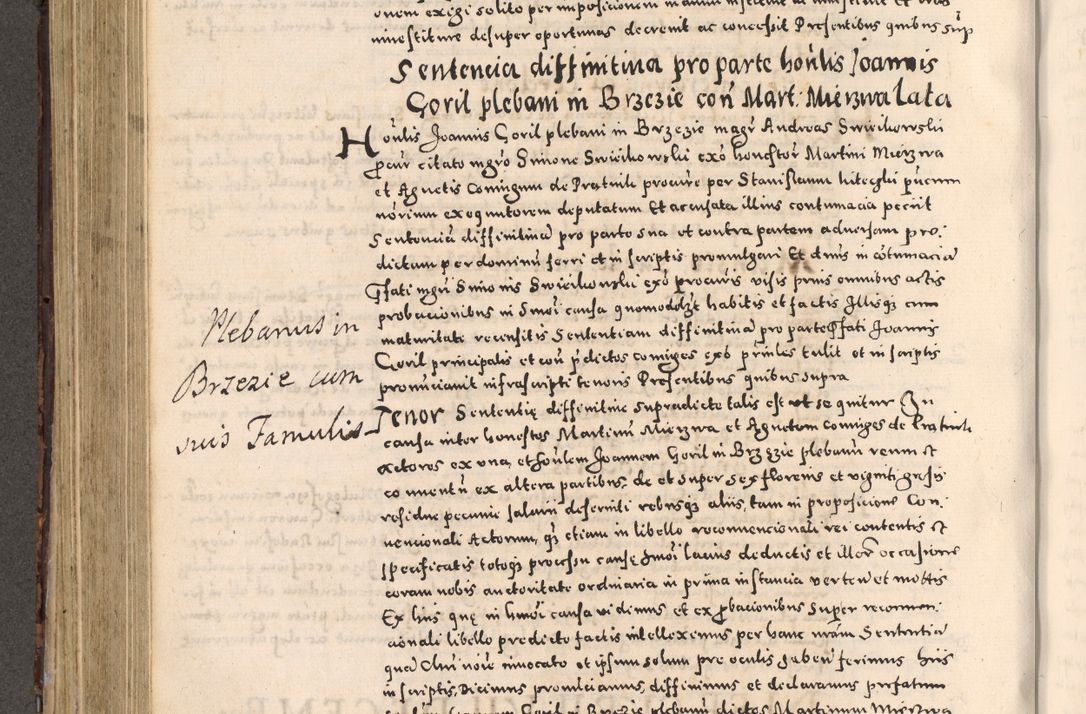 investiture desuper oportunas decrevit ac concessit Presentibus quibus sup
Sentencia diffinitiva pro parte honlis Joannis
Goril plebani in Brzezie con Mart: Mierzwa lata
Honlis Joannis Goril plebani in Brzezie magr Andreas Swieikowski
procur citato mgro Simone Swieikowski exo honestor Martini Mierzwa
et Agnetis Coniugum de Prątnik procure per Stanislaum
notorium exequutorem deputatum Et accusata illius contumacia peciit
Sentenciã diffinitivã pro parte sua et contra partem adversam pro.
dictum per dominum ferri et in scriptis promulgari Et dnus in cõtumaciã
pfati mgri Simonis Swieikowski exo procuris visis prius omnibus actis
probacionibus in hmoi causa quomodolzt habitis et factis Illisqz cum
maturitate recensitis Sententiam diffinitivã pro parte pfati Joannis
Goril principalis et con pdictos coniuges exo prinles tulit et in scriptis
pronunciavit infrascripti tenoris Presentibus quibus supra
Plebanus in
Brzezie cum
suis Famulis
Tenor Sententię diffinitive supradicte talis est ut sequitur In
causa inter honestos Martinũ Mierzwa et Agnetem Coniuges de Prątnik
Actores ex una, et honlem Joannem Goril in Brzęzie plebanũ reum et
conventũ ex altera partibus, de et super sex florenis et viginti grosis
residue pecunie salarii deserviti rebusqz aliis, tam in proposicione Con.
vencionali Actorum, qz etiam in libello reconvencionali rei contentis et
specificatis totoqz processu cause hmoi lacius deductis et illor occasione
coram nobis auctoritate ordinaria in prima instancia verten et mottis
Ex hiis quę in hmoi causa vidimus et ex pbacionibus super reconven.
cionali libello predicto factis intelleximus per hanc nrãm Sententiã
quã Chri noie invocato et ipsum solum pre oculis haben ferimus hiis
in scriptis, Dicimus pronunciamus, diffinimus et declaramus prefatum
Joannem Goril in Brzezie plebanũ dictos Martinum Mierzwa